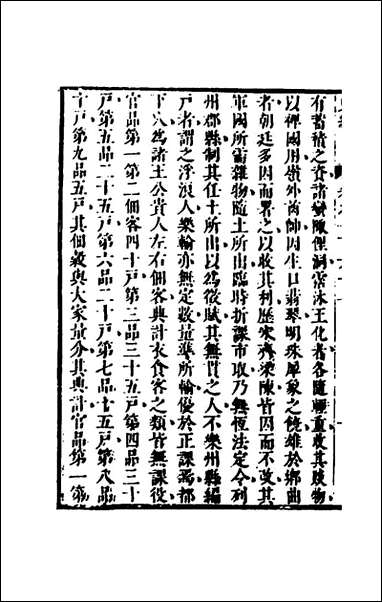 有蓄積之資諸蠻陬俚洞霑沐王化者各隨輕重收其賧物
以裨國用嶺外酋帥因生口翡翠明珠犀象之饒雄於鄉曲
者朝廷多因而署之以收其利歷宋齊梁陳皆因而不改其
軍國所需雜物隨土所出臨時折課市取乃無恆法定令列
州郡縣制其任土所出以為徵賦其無貫之人不樂州縣編
戶者謂之浮浪人樂輸亦無定數量準所輸優於正課焉都
下人為諸王公貴人左右佃客典計衣食客之類皆無課役
官品第一第二佃客四十戶第三品三十五戶第四品三十
戶第五品二十五戶第六品二十戶第七品十五戶第八品
十戶第九品五戶其佃穀與大家量分其典計官品第一第